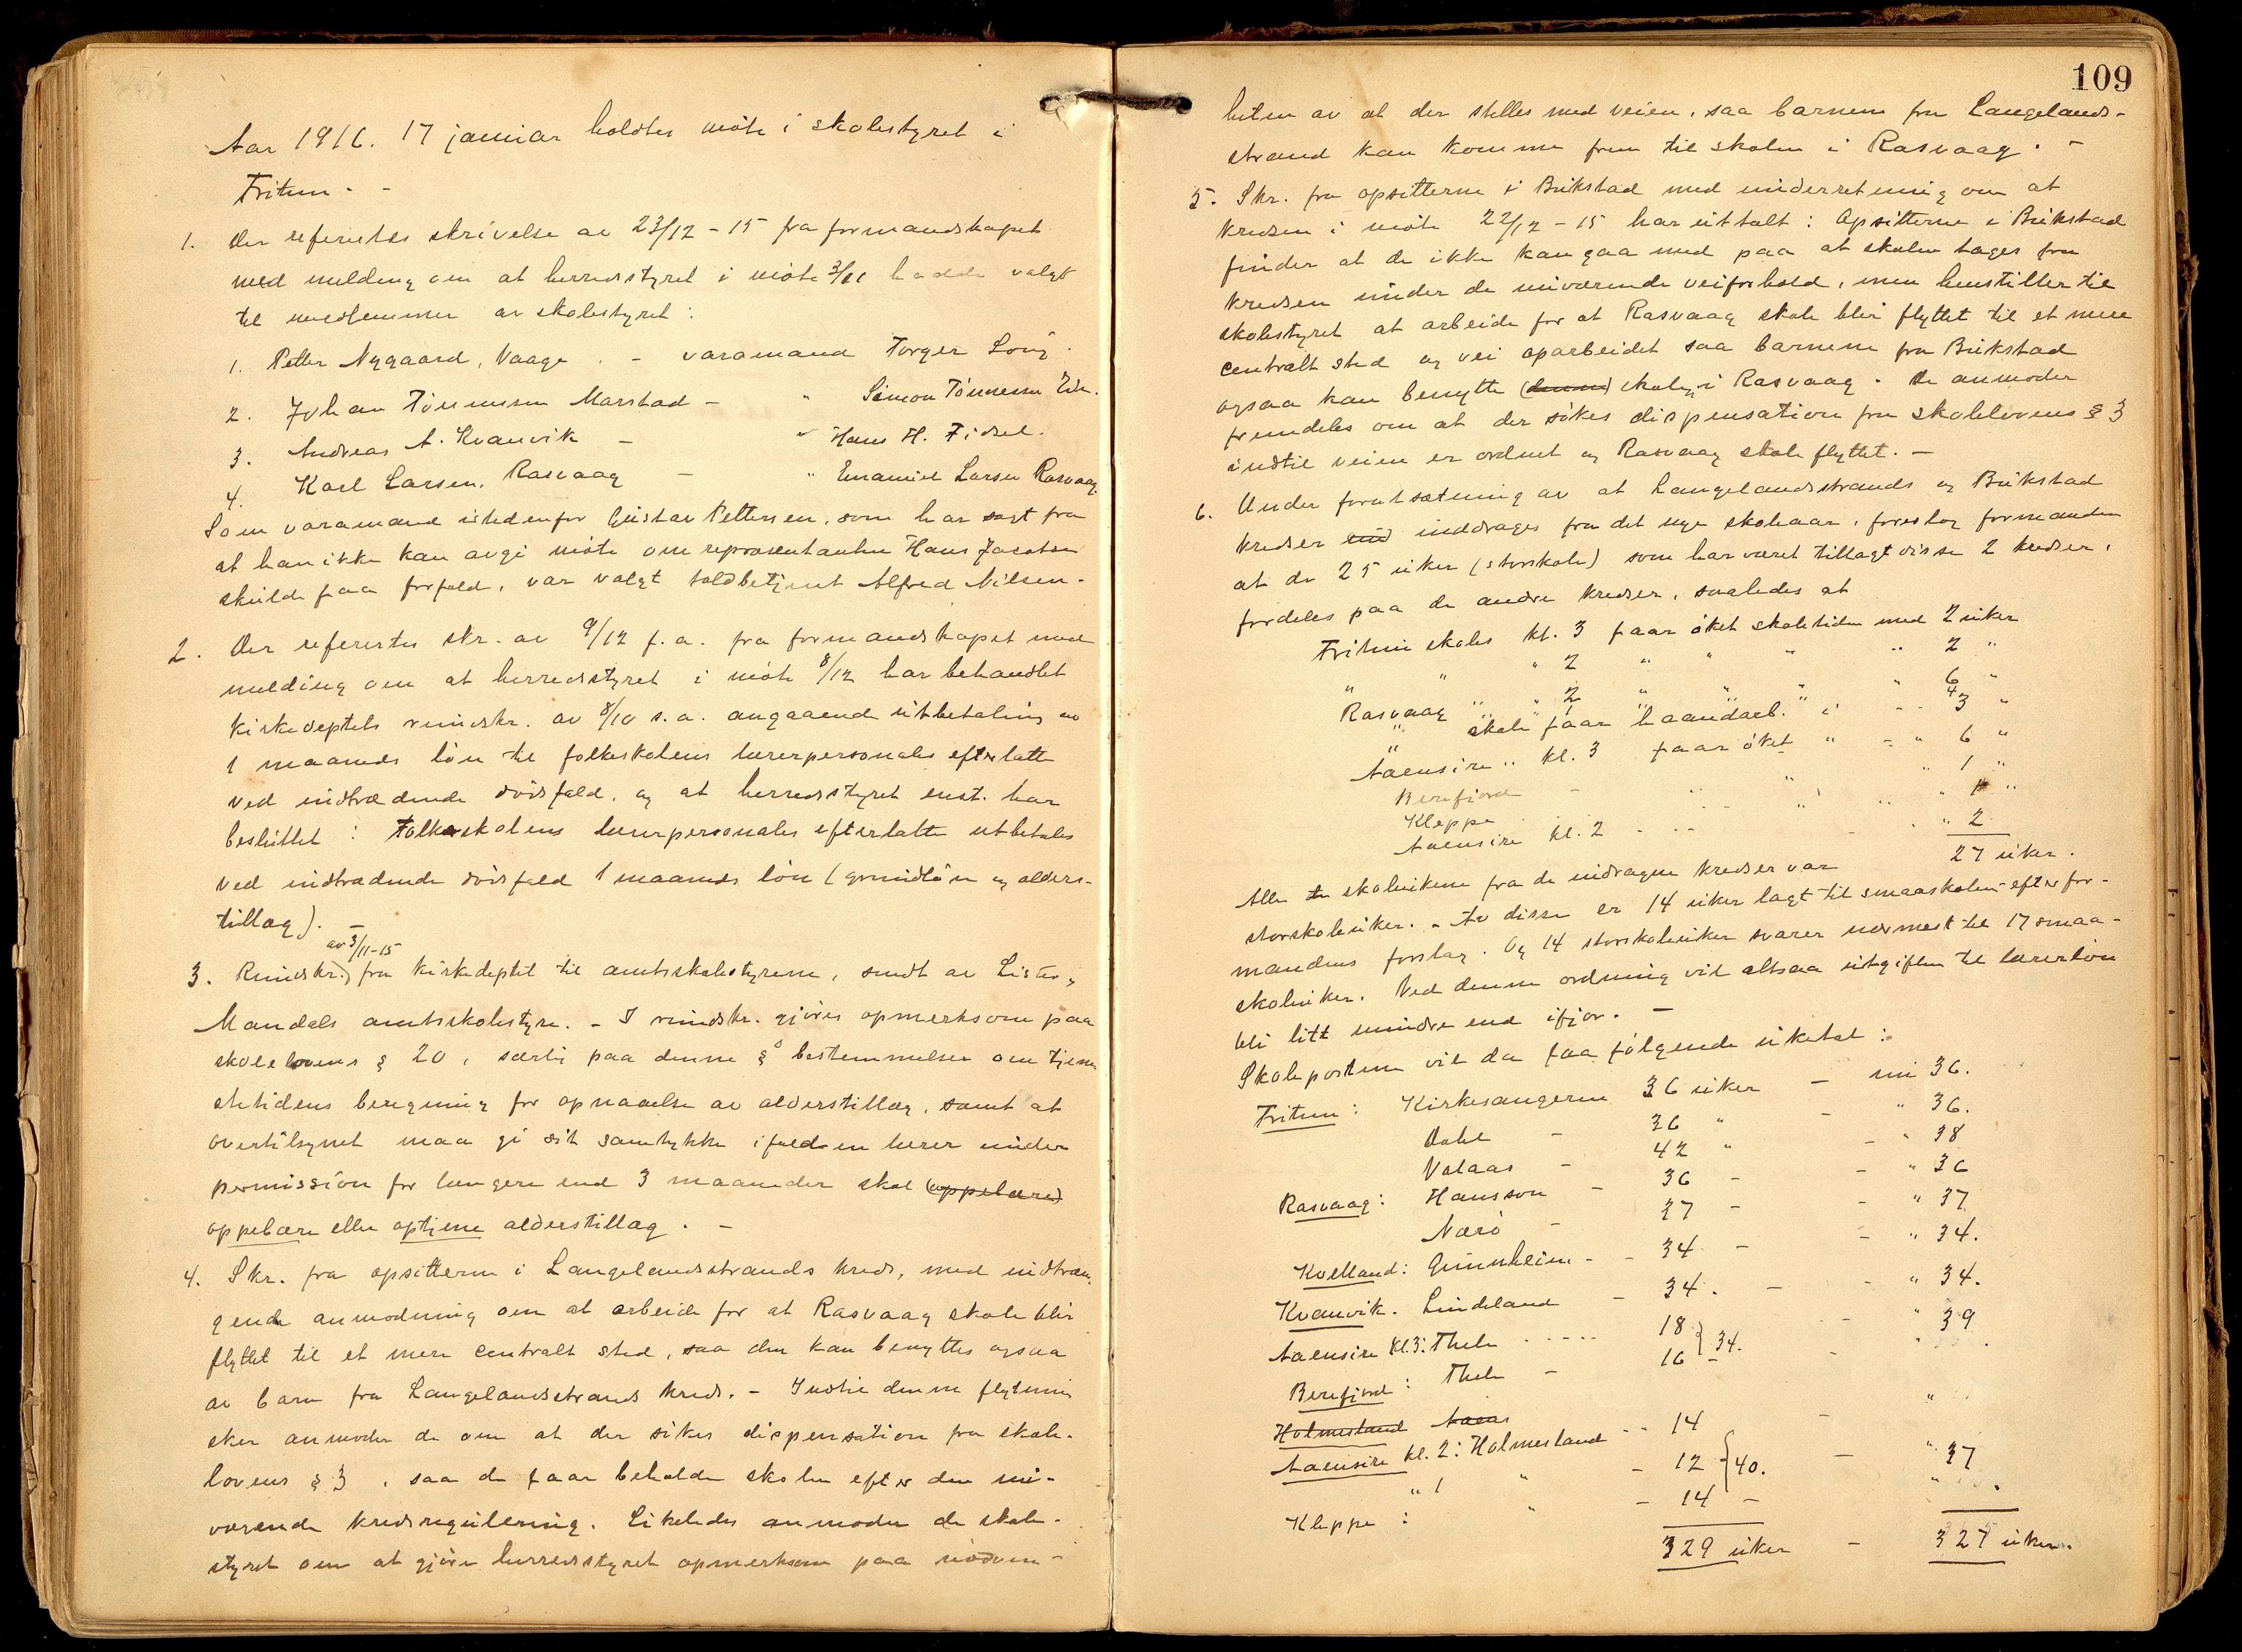 Aar 1916. 17 januar holdtes møte i skolestyret i
Fritun. -
1. Der referetes skrivelse av 23/12 - 15 fra formandskapet
med melding om at herredsstyret i møte 3/11 hadde valgt
til medlemmer av skolestyret:
1. Petter Nygaard, Vaage. - varamand Torger Log.
2. Johan Tønnesen Marstad - " Simon Tønnesen Eie.
3. Andreas A. Kvanvik - " Hans H. Fidsel.
4. Karl Larsen, Rasvaag - " Emanuel Larsen Rasvaag.
Som varamand istedenfor Gustav Pettersen, som har sagt fra
at han ikke kan avgi møte om representanten Hans Jacobsen
skulde faa forfald, var valgt toldbetjent Alfred Nilsen.
2. Der referertes skr. av 9/12 f. a. fra formandskapet med
melding om at herredsstyret i møte 8/12 har behandlet
kirkedeptets rundskr. av 8/10 s. a. angaaende utbetaling av
1 maaneds løn til folkeskolens lærerpersonales efterlatte
ved indtrædende dødsfald, og at herredsstyret enst. har
besluttet: Folkeskolens lærerpersonales efterlatte utbetales
ved indtrædende dødsfald 1 maaneds løn (grundløn og alders-
tillæg). -
av 3/11-15
3. Rundskr. fra kirkedeptet til amtsskolestyrene, sendt av Lister,
Mandals amtsskolestyre. - I rundskr. gjøres opmerksom paa
skolelovens § 20, særlig paa denne §s bestemmelser om tjene
stetidens beregning for opnaaelse av alderstillæg, samt at
overtilsynet maa gi sit samtykke ifald en lærer under
permission for længere end 3 maaneder skal (oppebære)
oppebære eller optjene alderstillæg. -
4. Skr. fra opsitterne i Langelandsstrands kreds, med indtræn-
gende anmodning om at arbeide for at Rasvaag skole blir
flyttet til et mere centralt sted, saa den kan benyttes ogsaa
av barn fra Langelandsstrands kreds. - Indtil denne flytning
sker anmoder de om at der søkes dispensation fra skole-
lovens § 3, saa de faar beholde skolen efter den nu-
værende kredsregulering. Likeledes anmoder de skole-
styret om at gjøre herredsstyret opmerksom paa nødven-
109
heten av at der stelles med veien, saa barnene fra Langelands-
strand kan komme frem til skolen i Rasvaag. -
5. Skr. fra opsitterne i Bukstad med underretning om at
kredsen i møte 22/12 - 15 har uttalt: Opsitterne i Bukstad
finder at de ikke kan gaa med paa at skolen tages fra
kredsen under de nuværende veiforhold, men henstiller til
skolestyret at arbeide for at Rasvaag skole blir flyttet til et mere
centralt sted og vei oparbeidet saa barnene fra Bukstad
ogsaa kan benytte (denne) skolen i Rasvaag. De anmoder
fremdeles om at der søkes dispensation fra skolelovens § 3
indtil veien er ordnet og Rasvaag skole flyttet. -
6. Under forutsætning av at Langelandsstrands og Bukstad
kredser ind inddrages fra det nye skoleaar, foreslog formanden
at de 25 uker (storskole) som har været tillagt disse 2 kredser,
fordeles paa de andre kredser, saaledes at
Fritun skoles kl. 3 faar øket skoletiden med 2 uker
" " " 2 " " " " 2 "
Rasvaag " " 2 " " " " 6 "
" skole faar haandarb. i - - 4 3 "
Aaensire " kl. 3 faar øket " - " 6 "
Berefjord - " " " 1 "
Kleppe - - " " " 1 "
Aaensire kl. 2 - - - - - " 2
27 uker.
Alle de skoleukene fra de indragne kredser var
storskoleuker. - Av disse er 14 uker lagt til smaaskolen efter for-
mandens forslag. Og 14 storskoleuker svarer nærmest til 17 smaa-
skoleuker. Ved denne ordning vil altsaa utgiften til lærerløn
bli litt mindre end ifjor. -
Skolepostene vil da faa følgende uketal:
Fritun: Kirkesangeren 36 uker - nu 36.
Dahl - 36 " - " 36.
Valaas - 42 " - " 38
Rasvaag: Hansson - 36 - - " 36
Nærø - 27 - - " 37
Kvelland: Gunnheim - - 34 - - " 34.
Kvanvik. Lindeland - 34. - - " 34.
Aaensire kl. 3: Thele - - - - - 18 } 34. - " 39
Berefjord: Thele - 16 - -
Holmesland Aaeas
Aaensire kl. 2: Holmesland - - 14 - "
" 1 " - 12 } 40. - " 37
Kleppe: " - 14 - "
329 uker - 327 uker.